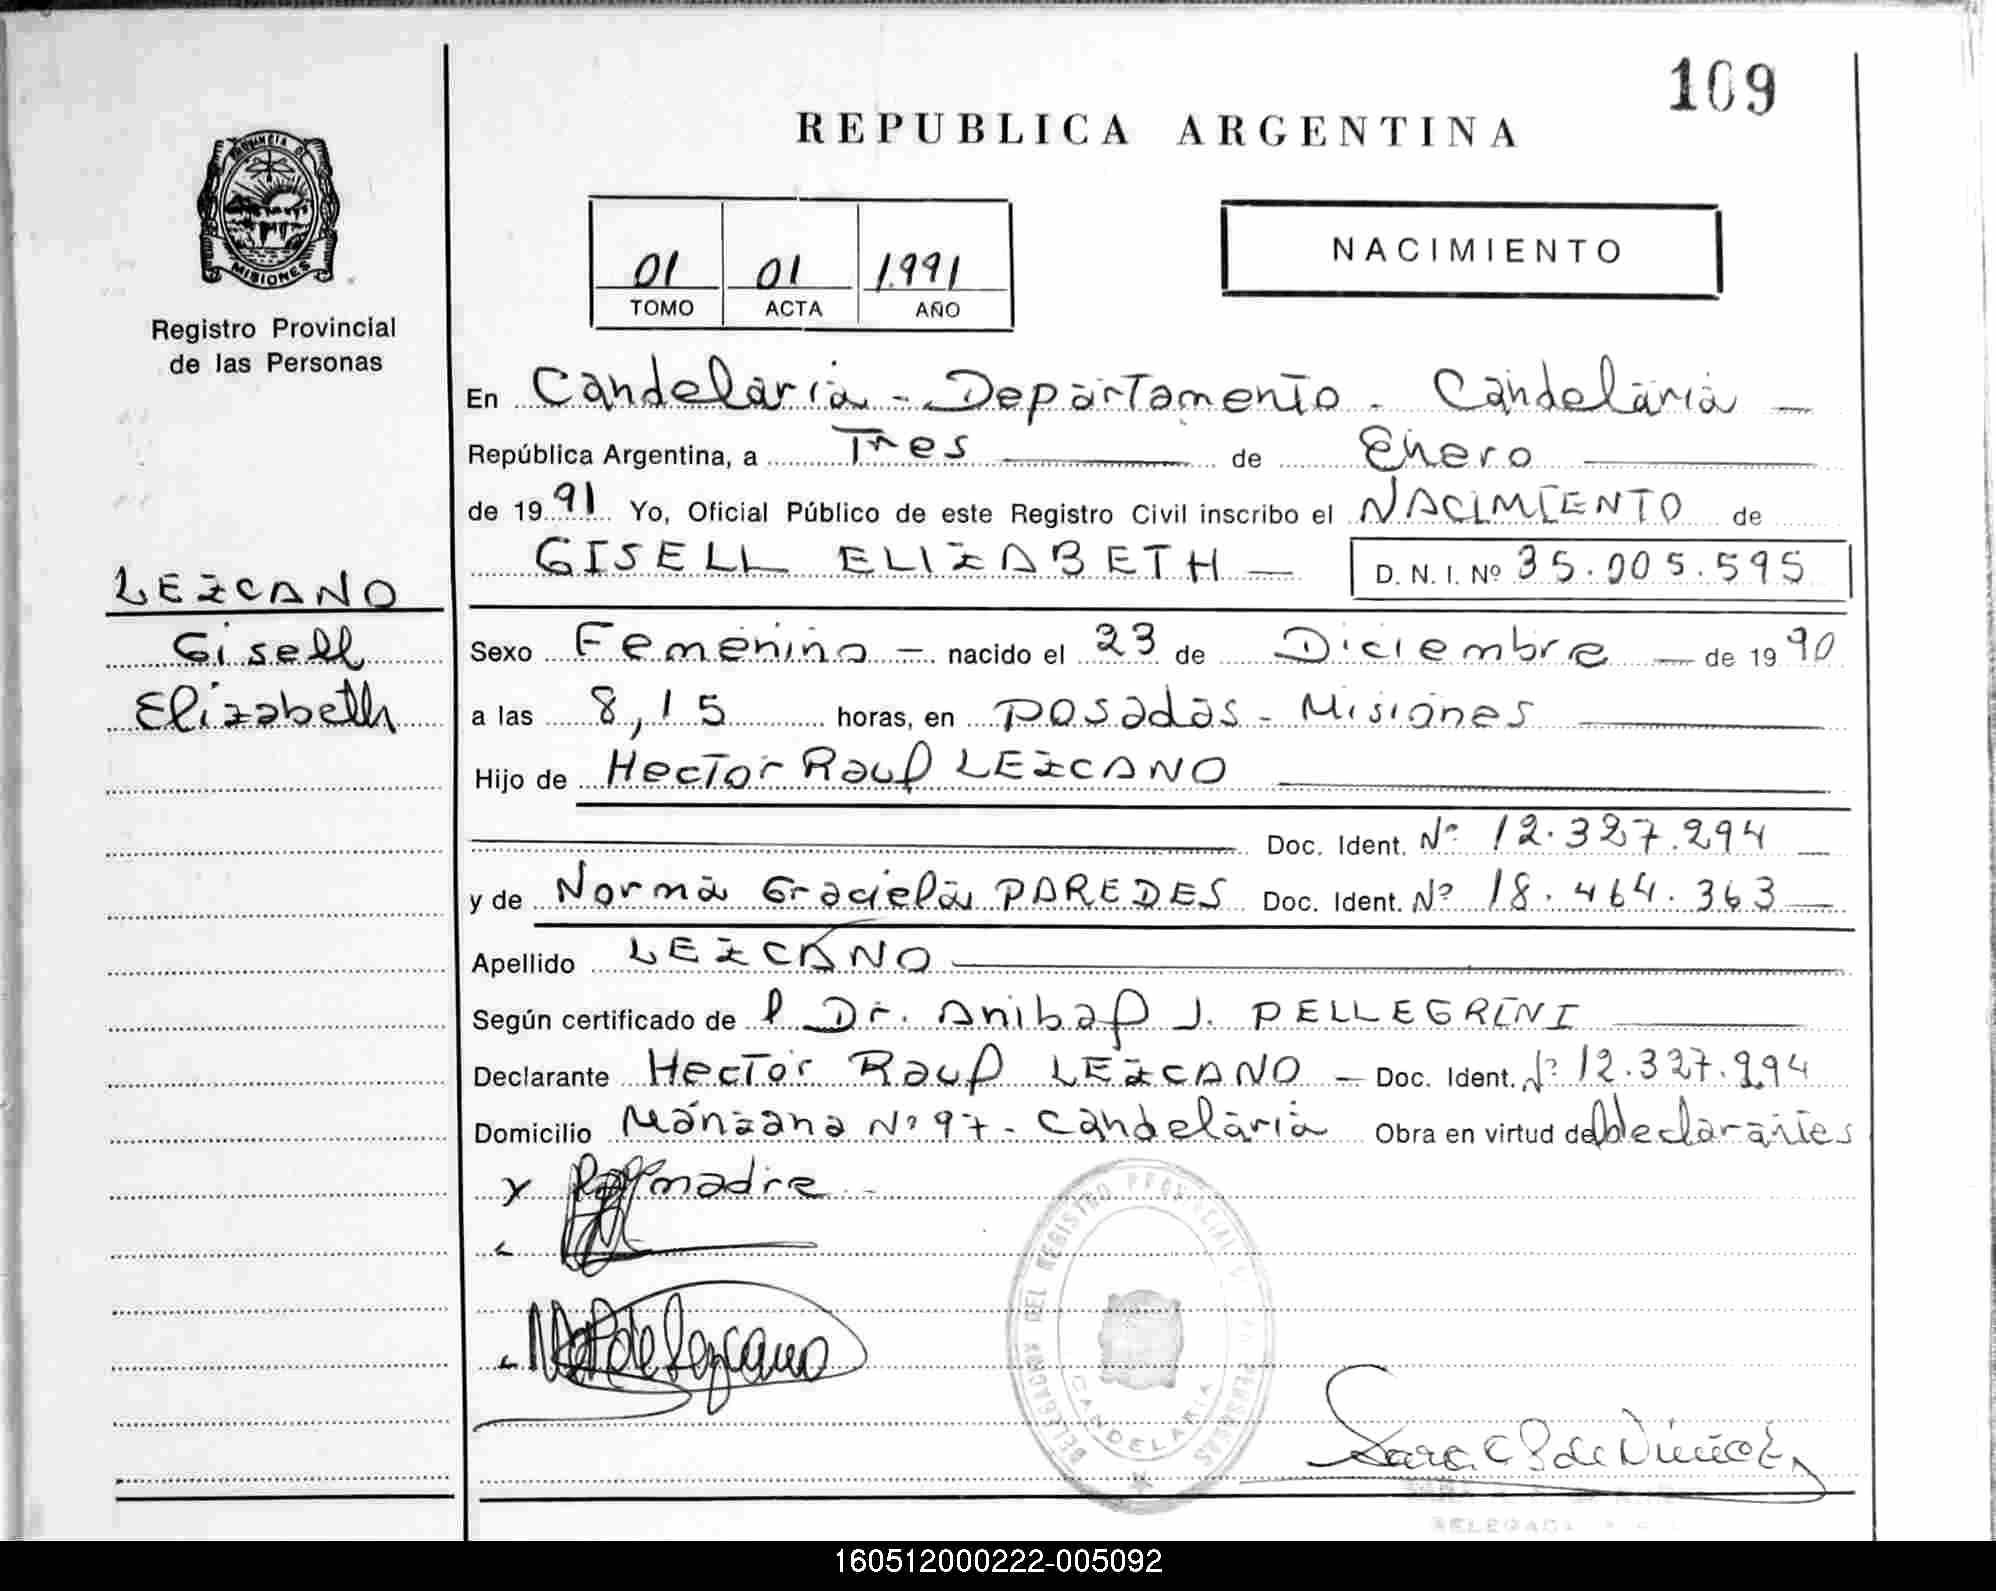 109
REPUBLICA ARGENTINA
PROVINCIA DE
MISIONES
Registro Provincial
de las Personas
01 01 1.991
TOMO ACTA AÑO
NACIMIENTO
En Candelaria - Departamento - Candelaria —
República Argentina, a Tres — de Enero —
de 1991 Yo, Oficial Público de este Registro Civil inscribo el NACIMIENTO de
GISELL ELIZABETH — D. N. I. Nº 35.005.595
LEZCANO
Gisell
Elizabeth
Sexo Femenino — nacido el 23 de Diciembre — de 1990
a las 8,15 horas, en Posadas - Misiones —
Hijo de Hector Raul LEZCANO —
Doc. Ident. Nº 12.327.294 —
y de Norma Graciela PAREDES Doc. Ident. Nº 18.464.363 —
Apellido LEZCANO —
Según certificado del Dr. Anibal J. PELLEGRINI —
Declarante Hector Raul LEZCANO — Doc. Ident. Nº 12.327.294
Domicilio Manzana Nº 97 - Candelaria Obra en virtud de declarantes
y madre -
DELEGACION DEL REGISTRO PROVINCIAL DE LAS PERSONAS
CANDELARIA
160512000222-005092